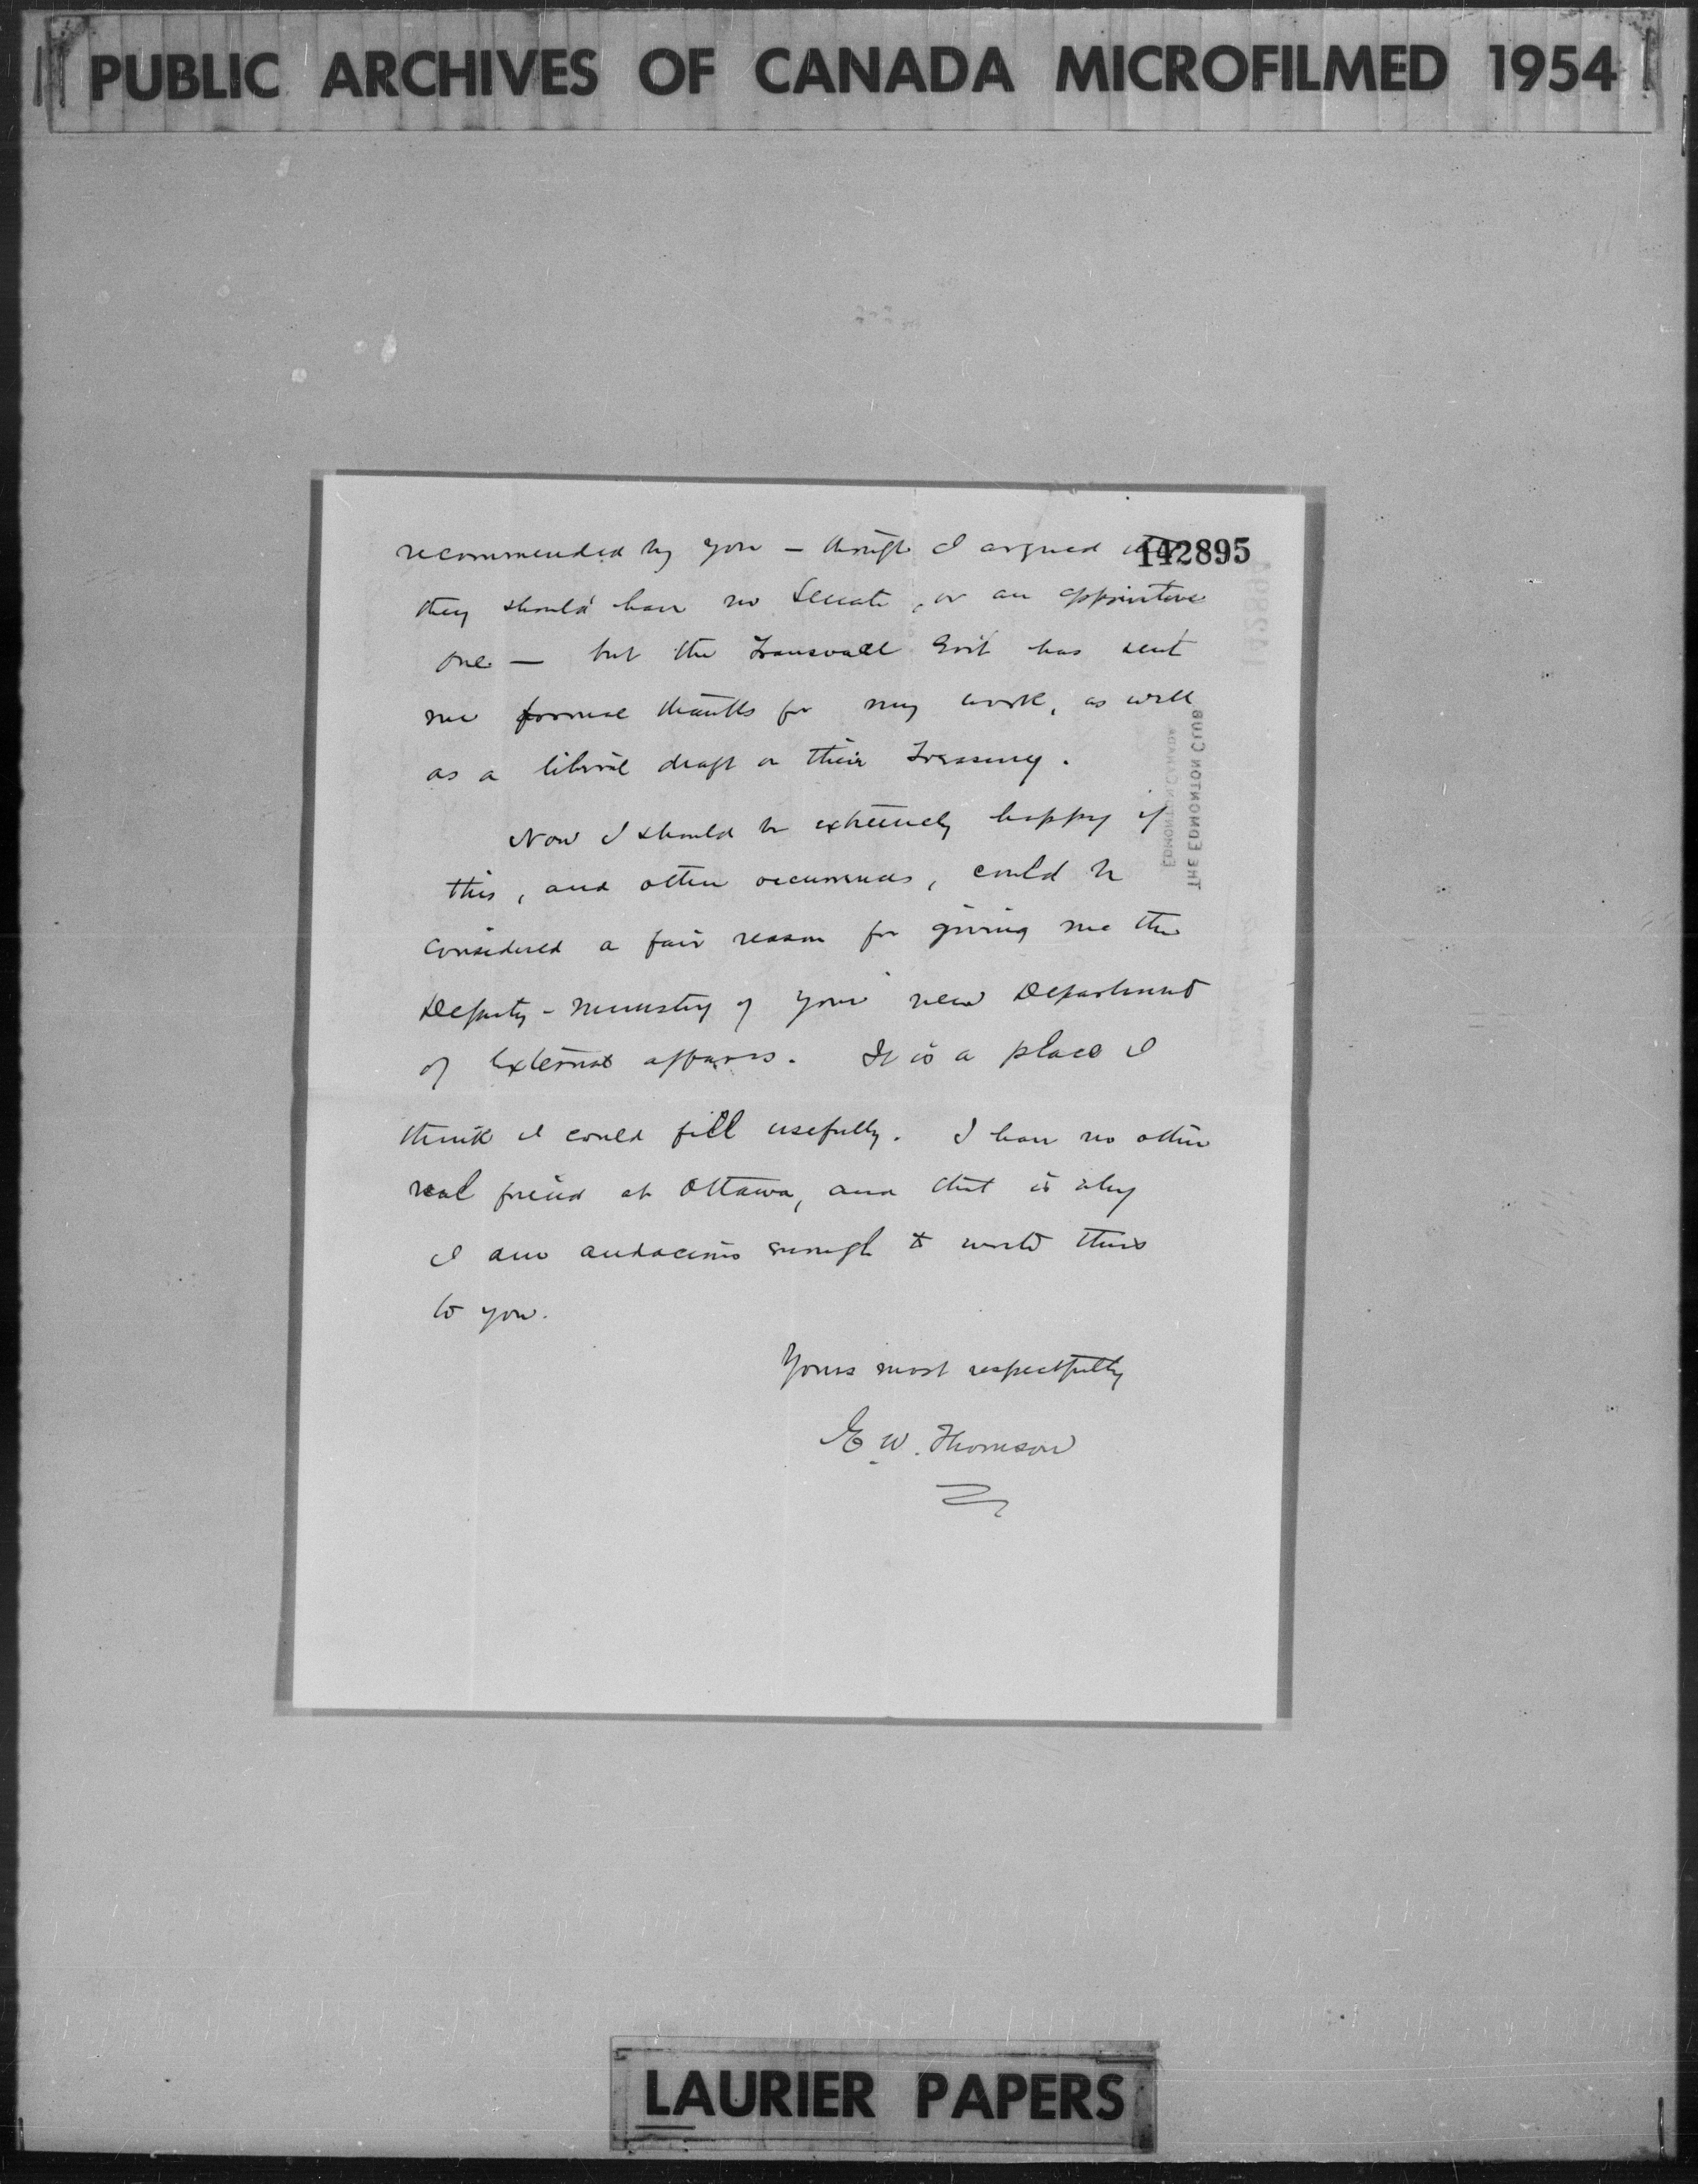 PUBLIC ARCHIVES OF CANADA MICROFILMED 1954
142895
recommended by you — though I argued
they should have no Senate, or an appointive
one — but the Transvaal Gov't has sent
me formal thanks for my work, as well
as a liberal draft on their Treasury.
Now I should be extremely happy if
this, and other occurrences, could be
considered a fair reason for giving me the
Deputy-Ministry of your new Department
of External affairs. It is a place I
think I could fill usefully. I have no other
real friend at Ottawa, and that is why
I am audacious enough to write this
to you.
Yours most respectfully
E. W. Thomson
THE EDMONTON CLUB
EDMONTON CANADA
LAURIER PAPERS